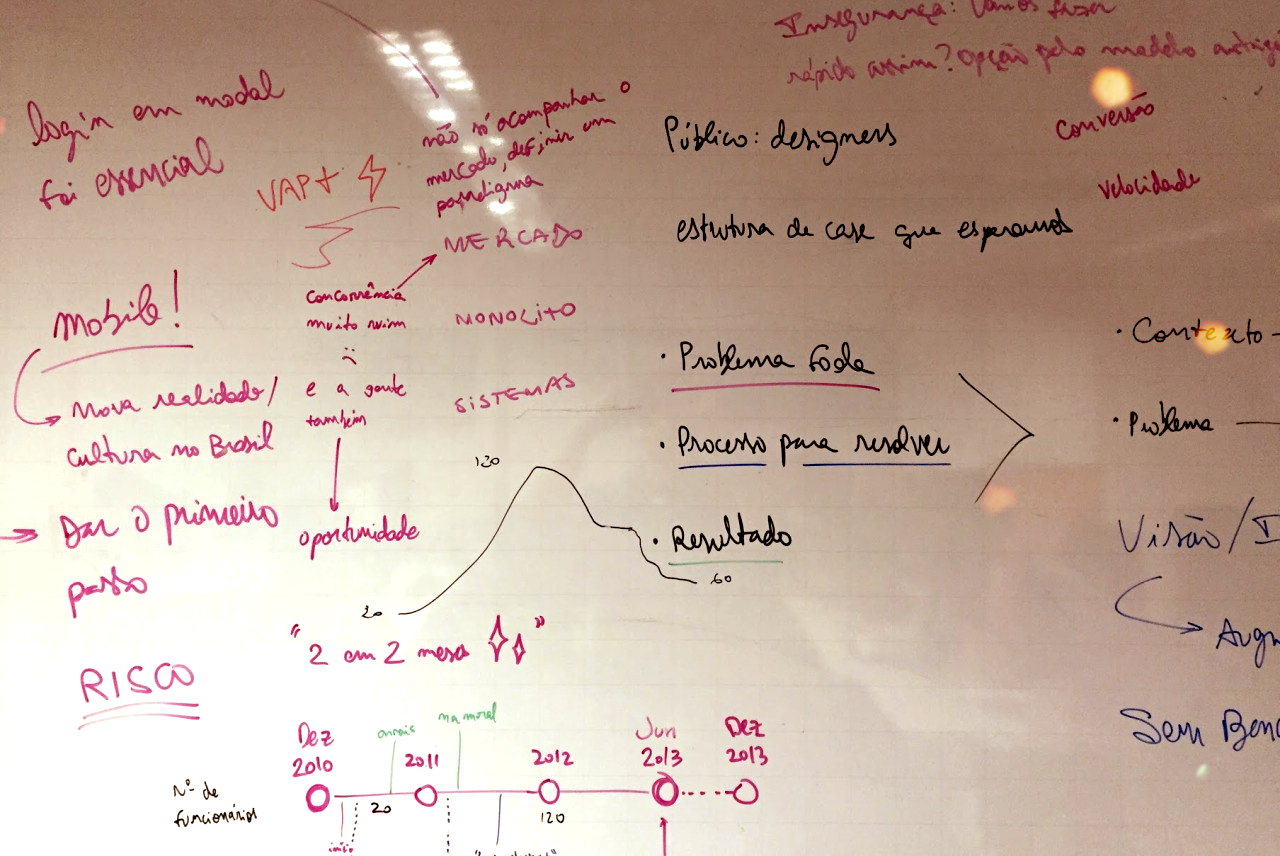 Insegurança: Vamos fazer
rápido assim? opção pelo modelo antigo
login em modal
foi essencial
VAPT
não só acompanhar o
mercado, definir um
paradigma
MERCADO
Público: designers
Conversão
velocidade
estrutura de case que esperamos
mobile!
Nova realidade/
cultura no Brasil
→ Dar o primeiro
passo
RISCO
Concorrência
muito ruim
:(
e a gente
também
oportunidade
MONOLITO
SISTEMAS
· Problema foda
· Processo para resolver
· Resultado
· Contexto -
· Problema —
Visão/I
Augm
Sem Benc
120
20
60
"2 em 2 meses"
Dez
2010
2011
2012
Jun
2013
Dez
2013
na moral
Nº de
funcionários
20
120
início